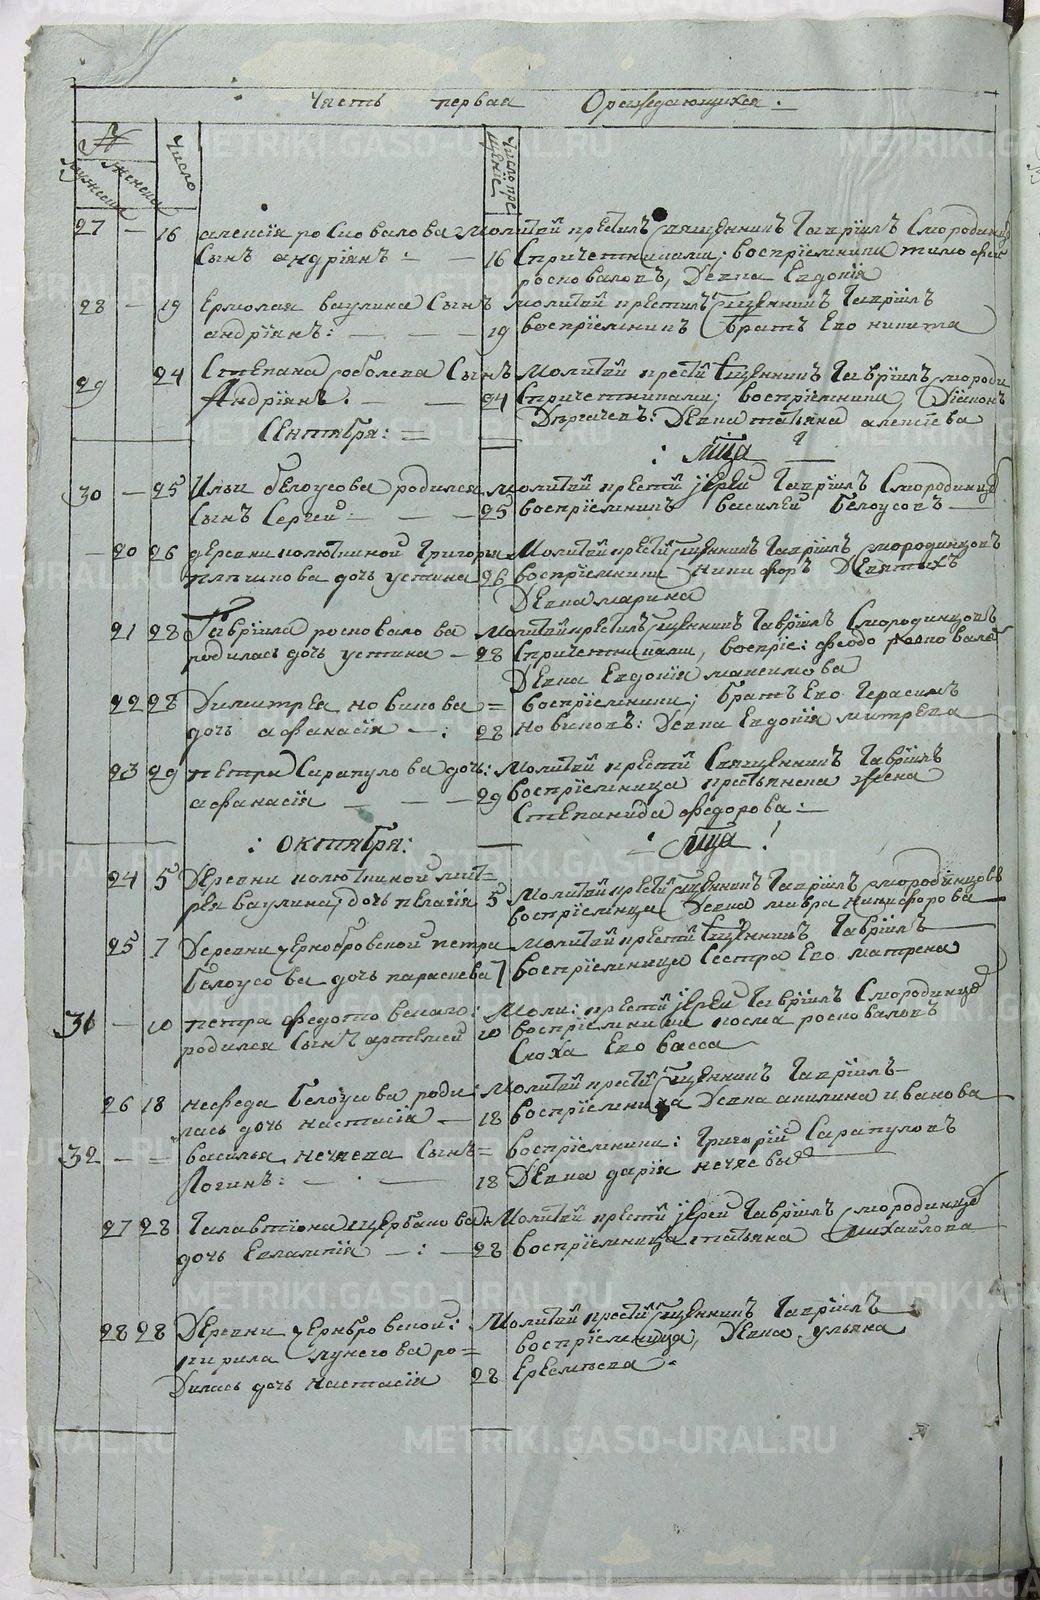 Часть первая О раждающихся.
№
мужеска
женска
Число
Число кре
щение
27 — 16 алексія росповалова
сынъ андріянъ: — — 16
молитвой крестилъ священникъ Гавріилъ Смородинцо
с причетниками: воспріемники тимофей
росповаловъ, Девка Евдокія
28 — 19 Ермолая ваулина Сынъ
андріянъ: — — — 19
молитвой крестилъ священникъ Гавріилъ
воспріемникъ братъ Ево никита
29 24 Степана соболева Сынъ
Андріянъ. — — 24
молитвой крести священникъ Гавріилъ смороди
с причетниками; воспріемники, Діаконъ
Девка татьяна алексіева
Сентября: =
: мца —
30 — 25 Ильи белоусова родился
сынъ Сергей: — — — 25
молитвой крести іерей Гавріилъ Смородинце
воспріемникъ василей Белоусовъ —
— 20 26 деревни колюткиной Григорья
дочь устина 26
молитвой крести священникъ Гавріилъ смородинцовъ
воспріемники никифоръ Девятыхъ
Девка марина
21 28 Гавріила росповалова
родилась дочь устина — 28
молитвой крестилъ священникъ Гавріилъ Смородинцовъ
с причетниками, воспріе: феодо
Девка Евдокія максимова
22 28 Димитрея новикова =
дочь афанасія — : 28
воспріемники; братъ Ево Герасимъ
новиковъ: Девка Евдокія митрева
23 29 петра Сарапулова дочь:
афанасія — — — 29
молитвой крести Священникъ Гавріилъ
воспріемница крестьянска жена
Степанида федорова: —
: октября:
: мца !
24 5 Деревни колюткиной мит=
рея ваулина; дочь пелагія 5
молитвой крести священникъ Гавріилъ смородинцовъ
воспріемница Девка мавра никифорова
25 7 Деревни чернобровской петра
Белоусова дочь параскева 7
молитвой крести священникъ Гавріилъ
воспріемница Сестра Ево матрена
31 — 10 петра федотовскаго:
родился сынъ артемей 10
моли: крести іерей Гавріилъ Смородинце
воспріемники косма росповаловъ
Сноха Ево васса
26 18 нефеда Белоусова роди
лась дочь настасія — 18
молитвой крести священникъ Гавріилъ
воспріемница Девка акилина иванова
32 — = василья нечаева Сынъ=
Логинъ: — . — 18
воспріемники: Григорій Сарапуловъ
Девка дарія нечаевыхъ
27 28 Галактіона щербакова
дочь Евлампія — : — 28
молитвой крести іерей Гавріилъ смородинце
воспріемница татьяна михайлова
28 28 Деревни чернобровской:
кирила лунегова ро=
дилась дочь настасія 28
молитвой крести священникъ Гавріилъ
воспріемница, Девка ульяна
Еремеева.
METRIKI.GASO-URAL.RU